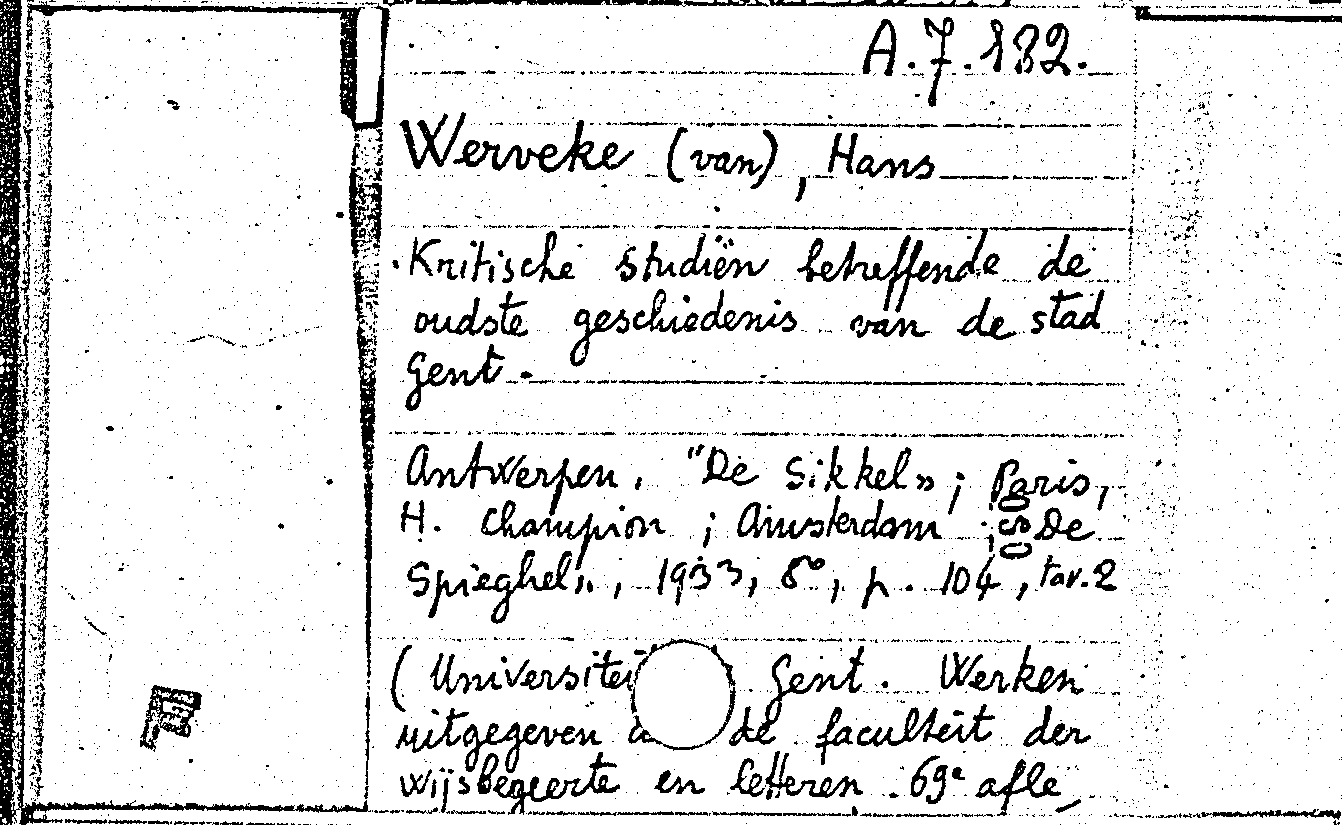 A.7.132.
Werveke (van), Hans
Kritische studiën betreffende de
oudste geschiedenis van de stad
Gent.
Antwerpen, "De Sikkel»; Paris,
H. Champion; Amsterdam; "De
Spieghel», 1933, 8°, p. 104, tav. 2
(Universiteit Gent. Werken
uitgegeven de faculteit der
wijsbegeerte en letteren. 69e afle_